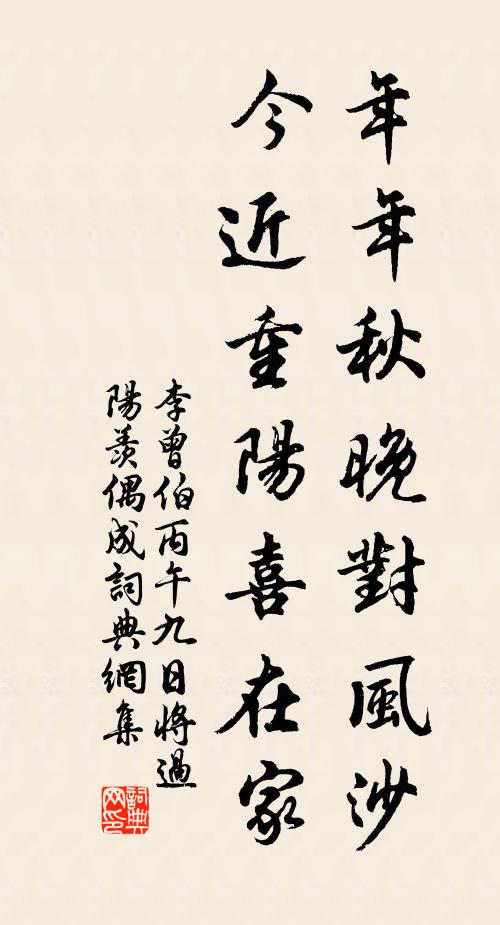 年年秋晚對風沙
今近重陽喜在家
李曾伯丙午九日將過
陽羨偶成詞典網集
詞典
网印